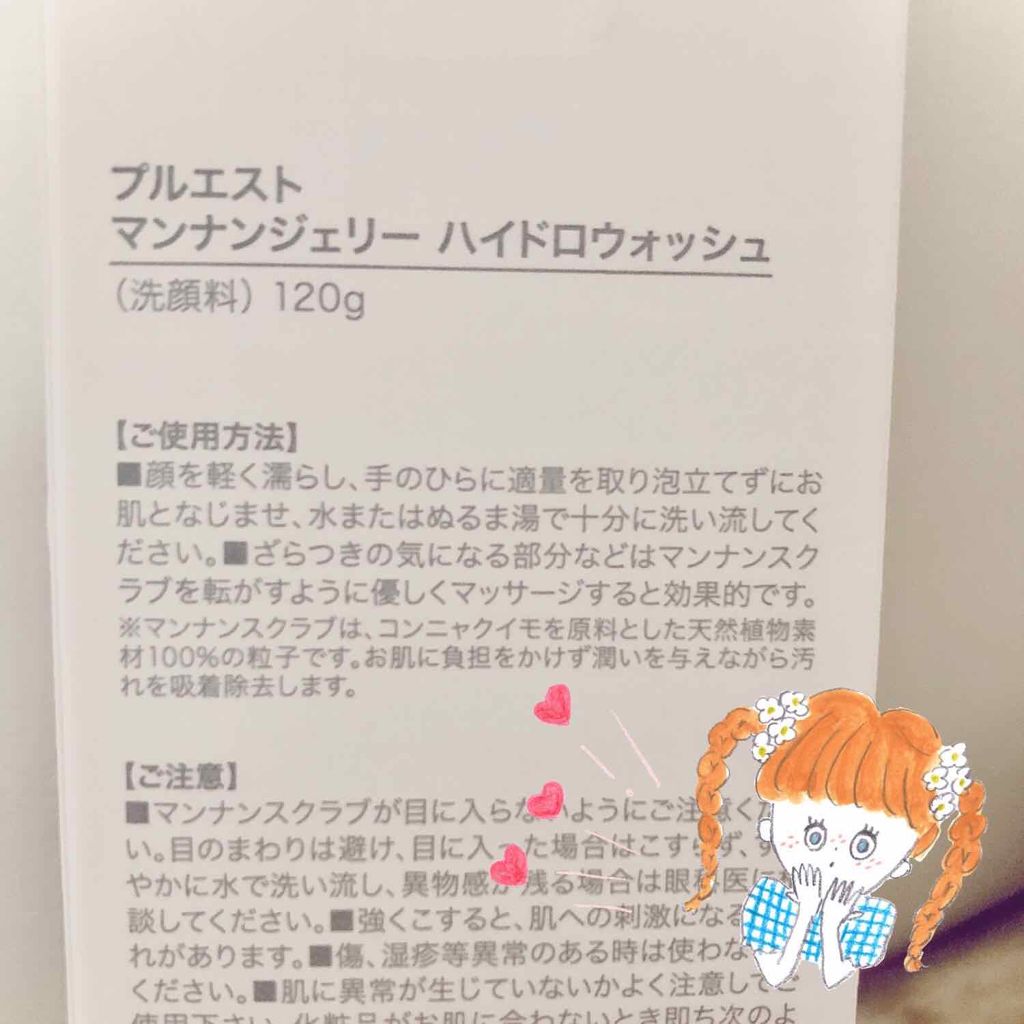 プルエスト
マンナンジェリー ハイドロウォッシュ
（洗顔料）120g
【ご使用方法】
■顔を軽く濡らし、手のひらに適量を取り泡立てずにお
肌となじませ、水またはぬるま湯で十分に洗い流してく
ださい。■ざらつきの気になる部分などはマンナンスク
ラブを転がすように優しくマッサージすると効果的です。
※マンナンスクラブは、コンニャクイモを原料とした天然植物素
材100%の粒子です。お肌に負担をかけず潤いを与えながら汚
れを吸着除去します。
【ご注意】
■マンナンスクラブが目に入らないようにご注意くだ
い。目のまわりは避け、目に入った場合はこすらず、す
やかに水で洗い流し、異物感が残る場合は眼科医に
談してください。■強くこすると、肌への刺激になる
れがあります。■傷、湿疹等異常のある時は使わな
ください。■肌に異常が生じていないかよく注意してご
使用下さい。化粧品がお肌に合わないとき即ち次のよ